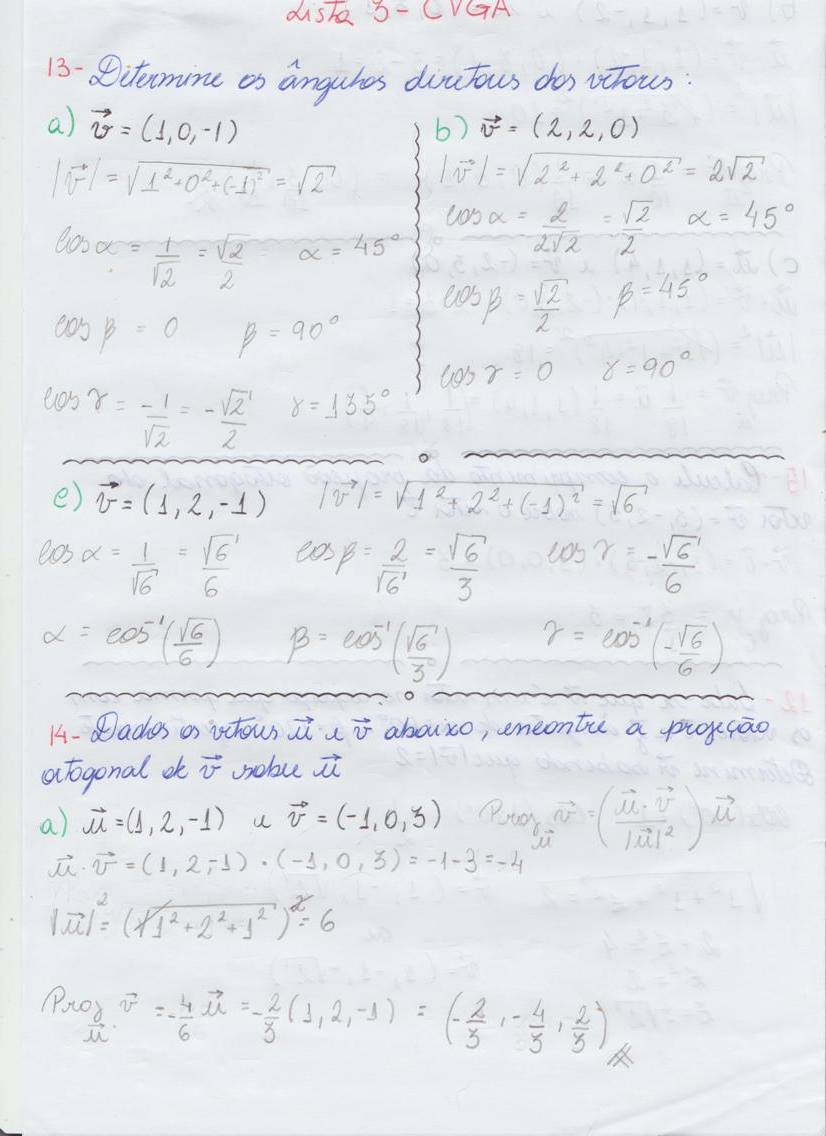 Lista 3 - CVGA
13- Determine os ângulos diretores dos vetores:
a) v⃗ = (1, 0, -1)
|v⃗| = √(1² + 0² + (-1)²) = √2
cos α = 1/√2 = √2/2 α = 45°
cos β = 0 β = 90°
cos γ = -1/√2 = -√2/2 γ = 135°
b) v⃗ = (2, 2, 0)
|v⃗| = √(2² + 2² + 0²) = 2√2
cos α = 2/2√2 = √2/2 α = 45°
cos β = √2/2 β = 45°
cos γ = 0 γ = 90°
c) v⃗ = (1, 2, -1) |v⃗| = √(1² + 2² + (-1)²) = √6
cos α = 1/√6 = √6/6 cos β = 2/√6 = √6/3 cos γ = -√6/6
α = cos⁻¹(√6/6) β = cos⁻¹(√6/3) γ = cos⁻¹(-√6/6)
14- Dados os vetores u⃗ e v⃗ abaixo, encontre a projeção
ortogonal de v⃗ sobre u⃗
a) u⃗ = (1, 2, -1) e v⃗ = (-1, 0, 3) Proj_u⃗ v⃗ = (u⃗ · v⃗/|u⃗|²) u⃗
u⃗ · v⃗ = (1, 2, -1) · (-1, 0, 3) = -1 - 3 = -4
|u⃗|² = (√(1² + 2² + 1²))² = 6
Proj_u⃗ v⃗ = -4/6 u⃗ = -2/3 (1, 2, -1) = (-2/3, -4/3, 2/3)